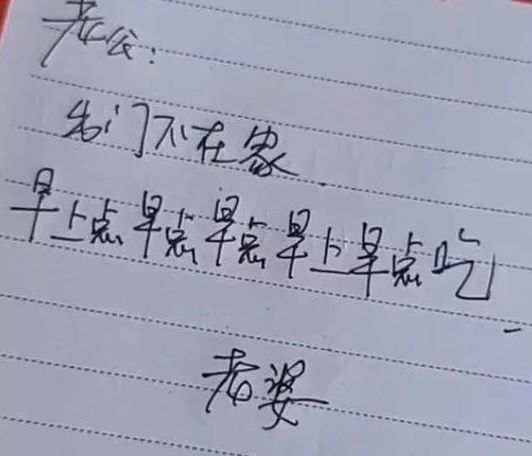 老公:
出门不在家
早上点早点早点早上早点吃.
老婆